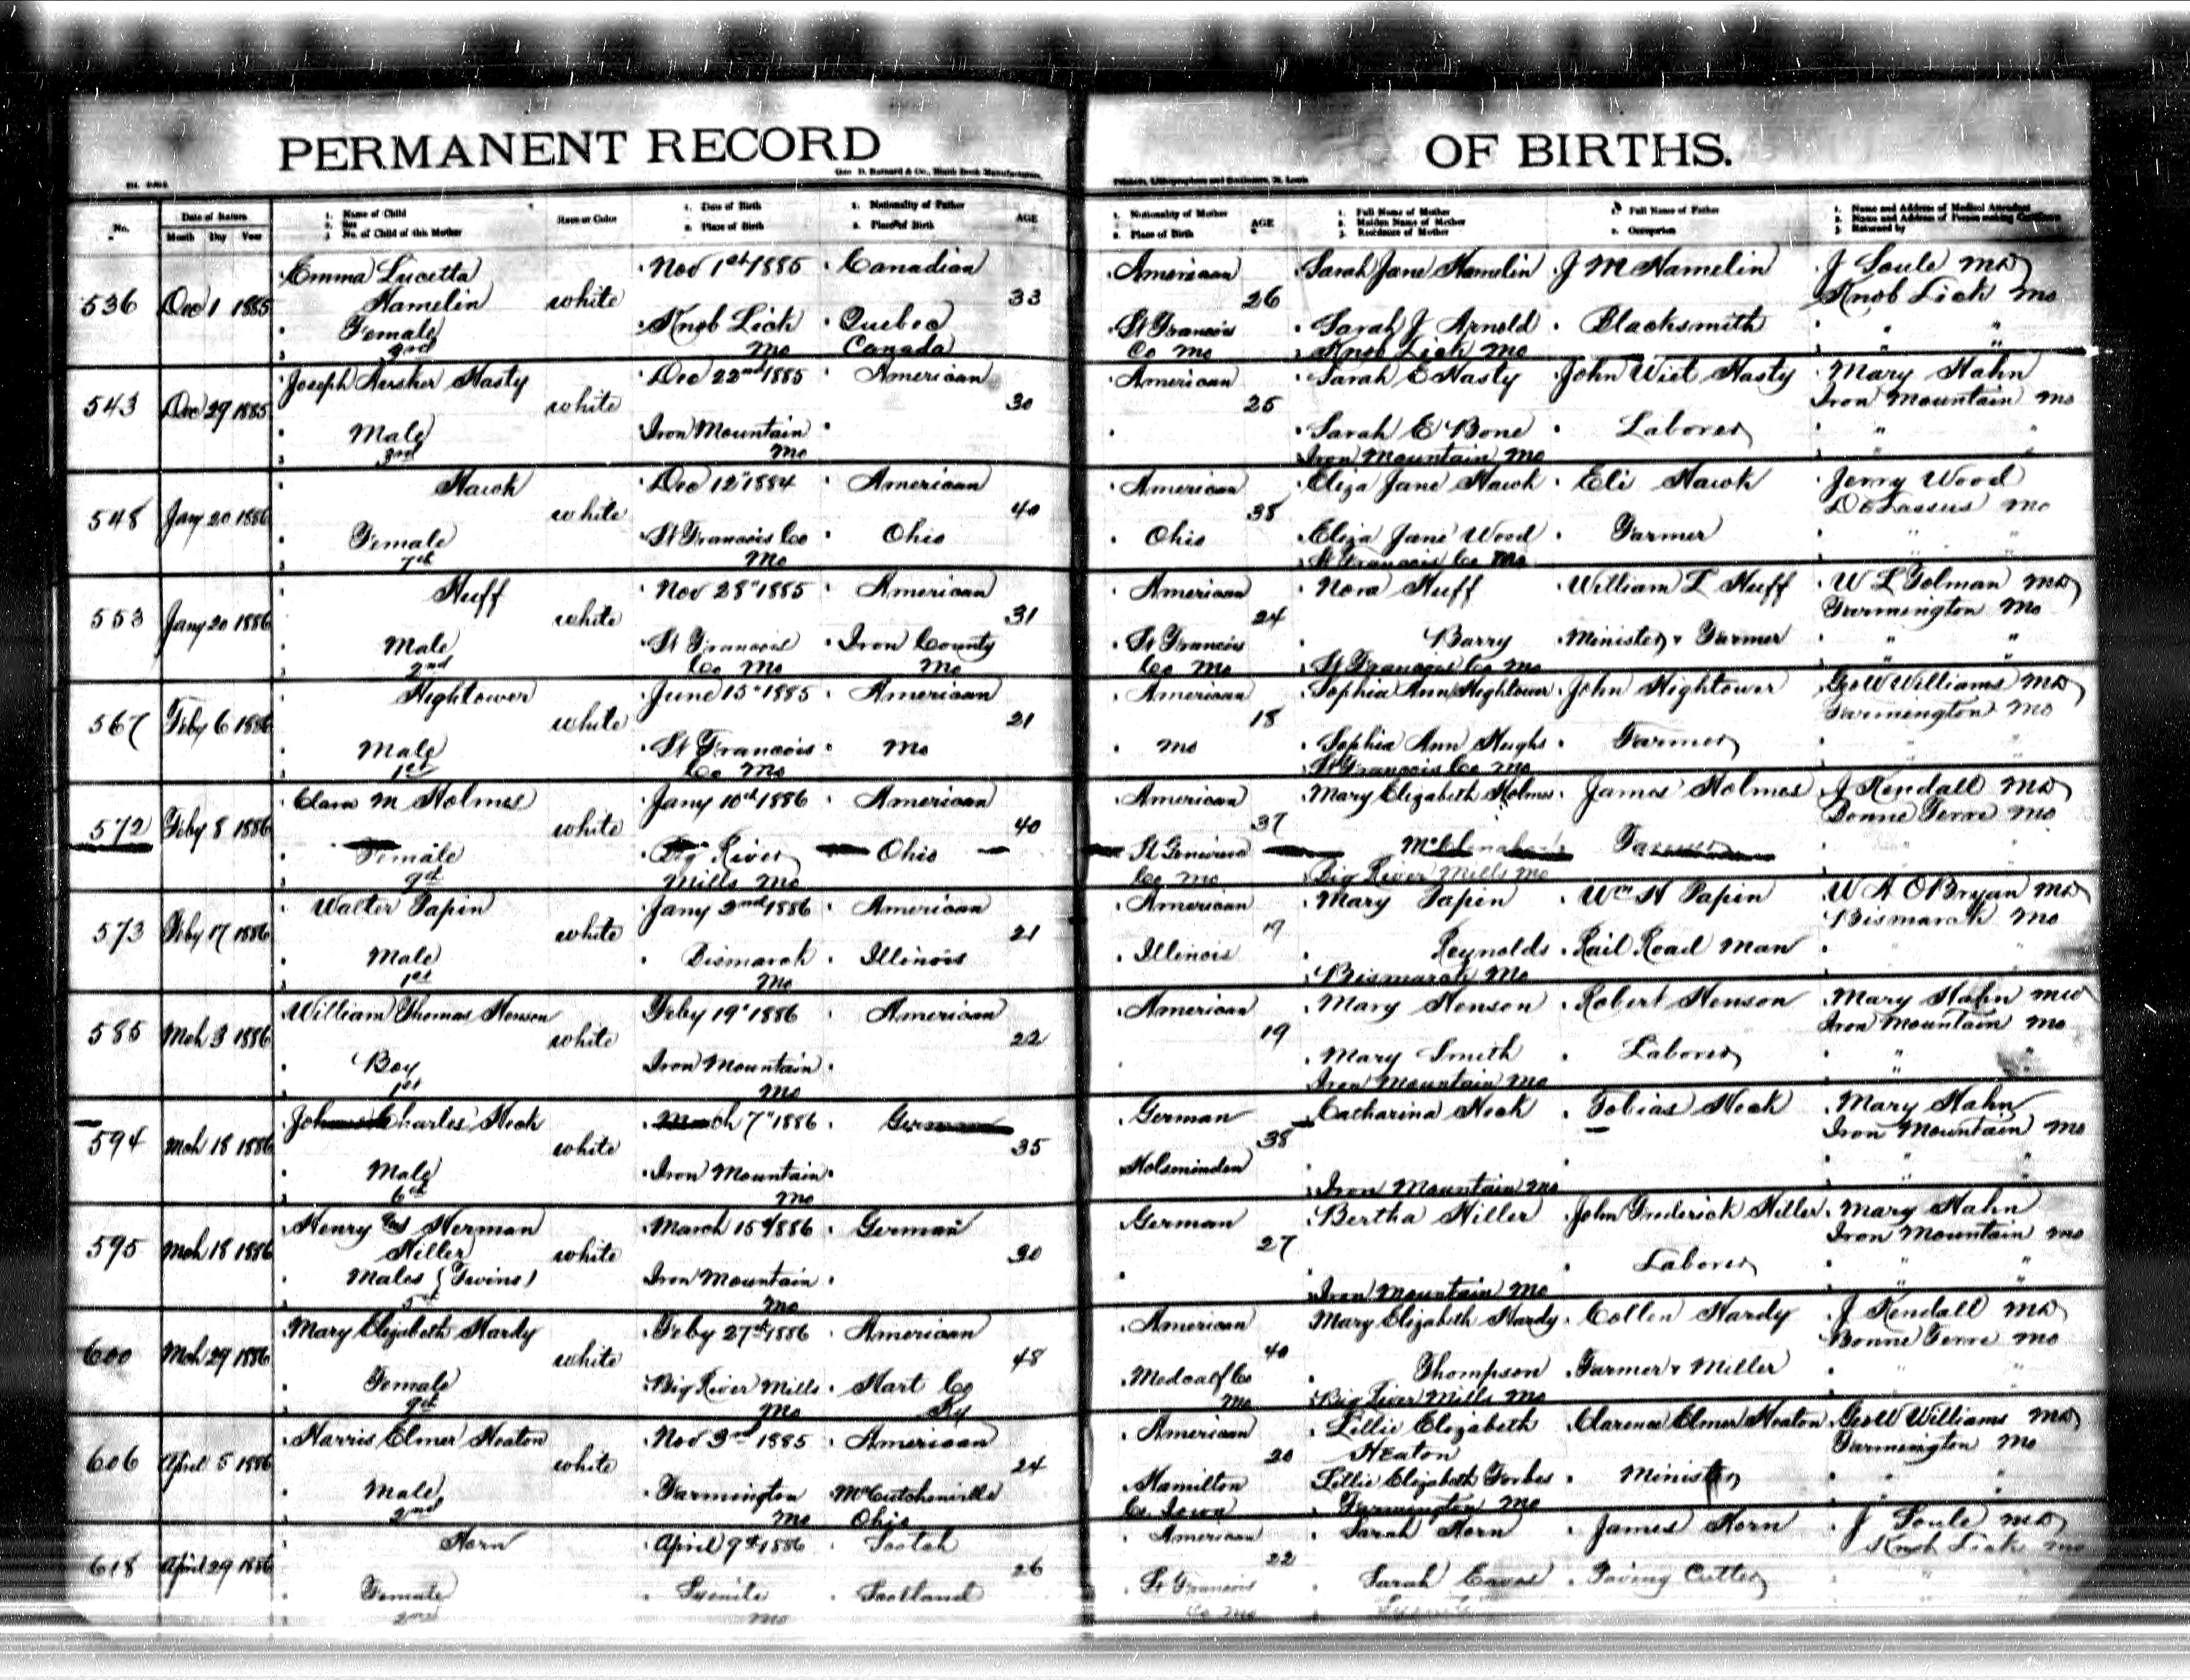 PERMANENT RECORD OF BIRTHS.
Geo. D. Barnard & Co., Blank Book Manufacturers, Printers, Lithographers and Stationers, St. Louis
No.
Date of Return
Month Day Year
1. Name of Child
2. Sex
3. No. of Child of this Mother
Race or Color
1. Date of Birth
2. Place of Birth
1. Nationality of Father
2. Place of Birth
AGE
1. Nationality of Mother
2. Place of Birth
AGE
1. Full Name of Mother
2. Maiden Name of Mother
3. Residence of Mother
1. Full Name of Father
2. Occupation
1. Name and Address of Medical Attendant
2. Name and Address of Person making Certificate
3. Returned by
Emma Lucetta Nov 1st 1885 Canadian American Sarah Jane Hamelin J M Hamelin J Soule MD
536 Dec 1 1885 Hamelin white 33 26 Knob Lick Mo
Female Knob Lick Quebec St Francois Sarah J Arnold Blacksmith " "
3rd Mo Canada Co Mo Knob Lick Mo " "
Joseph Hersher Hasty Dec 22nd 1885 American American Sarah E Hasty John Wiet Hasty Mary Hahn
543 Dec 29 1885 white 30 25 Iron Mountain Mo
Male Iron Mountain Sarah E Bone Laborer " "
3rd Mo Iron Mountain Mo " "
Hawk Dec 12" 1884 American American Eliza Jane Hawk Eli Hawk Jerry Wood
548 Jany 20 1886 white 40 38 DeLassus Mo
Female St Francois Co Ohio Ohio Eliza Jane Wood Farmer " "
7th Mo St Francois Co Mo " "
Huff Nov 28" 1885 American American Nora Huff William L Huff W L Tolman MD
553 Jany 20 1886 white 31 24 Farmington Mo
Male St Francois Iron County St Francois Barry Minister & Farmer " "
2nd Co Mo Mo Co Mo St Francois Co Mo " "
Hightower June 15" 1885 American American Sophia Ann Hightower John Hightower Geo W Williams MD
567 Feby 6 1886 white 21 18 Farmington Mo
Male St Francois Mo Mo Sophia Ann Hughs Farmer " "
1st Co Mo St Francois Co Mo
Clara M Holmes Jany 10th 1886 American American Mary Elizabeth Holmes James Holmes J Kendall MD
572 Feby 8 1886 white 40 37 Bonne Terre Mo
Female Big River Ohio St Genevieve Farmer
9th Mills Mo Co Mo Big River Mills Mo
Walter Papin Jany 2nd 1886 American American Mary Papin Wm H Papin W A OBryan MD
573 Feby 17 1886 white 21 19 Bismarck Mo
Male Bismarck Illinois Illinois Reynolds Rail Road Man " "
1st Mo Bismarck Mo
William Thomas Henson Feby 19" 1886 American American Mary Henson Robert Henson Mary Hahn
585 Mch 3 1886 white 22 19 Iron Mountain Mo
Boy Iron Mountain Mary Smith Laborer " "
1st Mo Iron Mountain Mo " "
Charles Heck March 7" 1886 German German Catharina Heck Tobias Heck Mary Hahn
594 Mch 18 1886 white 35 38 Iron Mountain Mo
Male Iron Mountain Holsminden " "
6th Mo Iron Mountain Mo " "
Henry and Herman March 15th 1886 German German Bertha Hiller John Frederick Hiller Mary Hahn
595 Mch 18 1886 Hiller white 30 27 Iron Mountain Mo
Males (Twins) Iron Mountain Laborer " "
Mo Iron Mountain Mo " "
Mary Elizabeth Hardy Feby 27th 1886 American American Mary Elizabeth Hardy Collen Hardy J Kendall MD
600 Mch 29 1886 white 48 40 Bonne Terre Mo
Female Big River Mills Hart Co Medcalf Co Thompson Farmer & Miller " "
9th Mo Ky Mo Big River Mills Mo
Harris Elmer Heaton Nov 3rd 1885 American American Lillie Elizabeth Clarence Elmer Heaton Geo W Williams MD
606 April 5 1886 white 24 20 Heaton Farmington Mo
Male Farmington McCutchenville Hamilton Lillie Elizabeth Forbes Minister " "
2nd Mo Ohio Co. Iowa Farmington Mo
Horn April 9th 1886 Scotch American Sarah Horn James Horn J Soule MD
618 April 29 1886 white 26 22 Knob Lick Mo
Female Syenite Scotland St Francois Sarah Eaves Paving Cutter " "
2nd Mo Co Mo Syenite